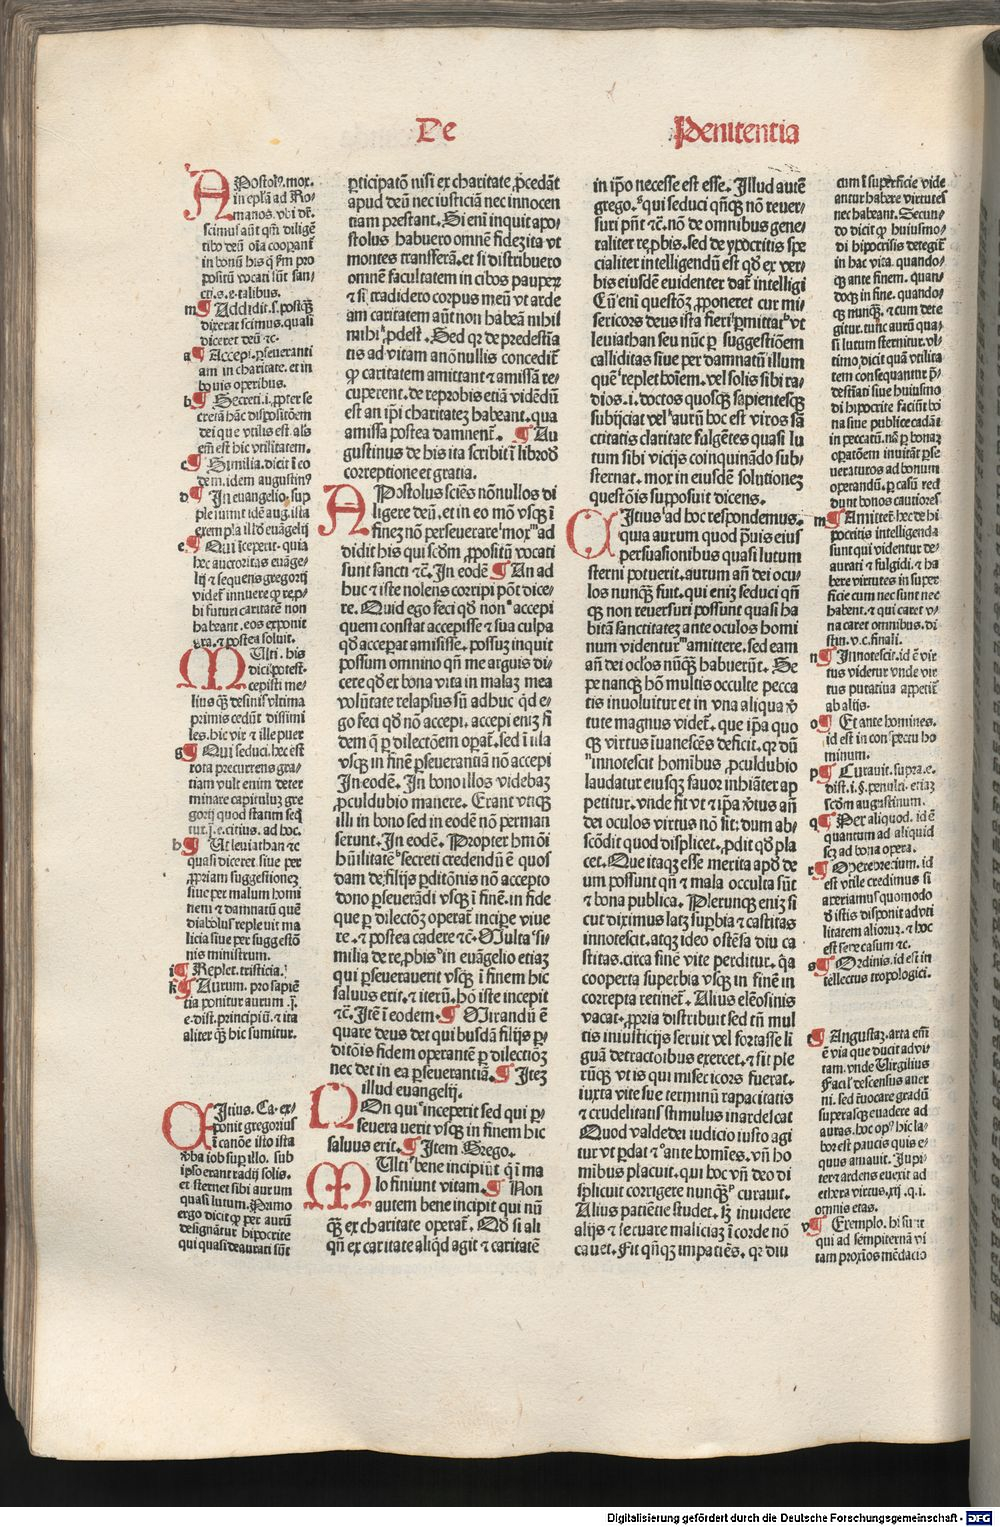 De Penitentia
APostolꝰ.mox.
in eplā ad Ro-
manos.vbi dr̄.
scimus aūt qm̄ diligē
tibo deū oīa cooꝑant̄
in bonū his q̄ s̄m pro
positū vocati sūt san-
cti.s.e.talibus.
m ¶ Addidit.s.postq̄ꝫ
dixerat scimus.quasi
diceret deū ⁊c.
a ¶ Accepi.ꝑseueranti
am in charitate.et in
bonis operibus.
b ¶ Secreti.i.ꝓpter se
cretā hāc dispositōem
dei que vtilis est.als
em̄ est hic vtilitatem.
c ¶ Similia.dicit ī eo
dem.idem augustinꝰ
d ¶ In euangelio.sup
ple iunit idē aug.illa
exempla illd̄ euāgelij
e ¶ Qui īceperit.quia
hec auctoritas euāge-
lij ⁊ sequens gregorij
videt̄ innuere ꝙ reꝓ-
bi futuri caritatē non
habeant.eos exponit
gra.⁊ postea soluit.
MUlti.his
dici potest.
cepisti me-
lius q̄ꝫ desinis vltima
primis cedūt dissimi
les.hic vir ⁊ ille puer
g ¶ Qui seduci.hec est
tota precurrens gra-
tiam vult enim deter
minare capitulum gre
gorij quod statim seq̄
tur.j.e.citius.ad hoc.
h ¶ Ut leuiathan ⁊c
quasi diceret.siue per
ꝓpriam suggestionem
siue per malum homi
nem ⁊ damnatū quē
diabolus repleuit ma
licia siue per suggestō
nis ministrum.
i ¶ Replet.tristicia.
k ¶ Aurum.pro sapiē
tia ponitur aurum.j.
e.dist.principiū.⁊ ita
aliter q̄ꝫ hic sumitur.
CItius.Ca.ex-
ponit gregorius
ī canōe isto ista
v̄ba iob suꝑ illo.sub
ipso erant radij solis.
et sternet sibi aurum
quasi lutum.Primo
ergo dicit ꝙ per aurū
designātur hipocrite
qui quasi deaurati sūt
ꝑticipatō nisi ex charitate ꝓcedāt
apud deū nec iusticiā nec innocen
tiam prestant.Si enī inquit apo-
stolus habuero omnē fidem ita vt
montes transferā.et si distribuero
omnē facultatem in cibos pauperꝫ
⁊ si tradidero corpus meū vt arde
am caritatem aūt non habeā nihil
mihi ꝓdest.Sed qꝛ de predestīa
tis ad vitam a nōnullis concedit̄
ꝙ caritatem amittant ⁊ amissā re-
cuperent.de reprobis etiā vidēdū
est an ipi charitatem habeant.qua
amissa postea damnent̄. ¶ Au
gustinus de his ita scribit ī libro d̄
correptione et gratia.
APostolus sciēs nōnullos di
ligere deū.et in eo mō vsq̄ꝫ ī
finem nō perseuerare mox ad
didit his qui scdm̄ ꝓpositū vocati
sunt sancti ⁊c.In eodē ¶ An ad
huc ⁊ iste nolens corripi pōt dice-
re.Quid ego feci qd̄ non accepi
quem constat accepisse ⁊ sua culpa
qd̄ acceꝑat amisisse.possum inquit
possum omnino qn̄ me arguis di-
cere qd̄ ex bona vita in malam mea
volūtate relapsus sū adhuc qd̄ e-
go feci qd̄ nō accepi.accepi enim fi
dem q̄ ꝑ dilectōem oꝑat̄.sed ī illa
vsq̄ꝫ in finē ꝑseuerantiā nō accepi
In eodē.In bono illos videbam
ꝓculdubio manere.Erant vtiq̄ꝫ
illi in bono sed in eodē nō perman
serunt.In eodē.Propter hm̄oi
hūilitatē secreti credendū ē quos
dam de filijs ꝑditōnis nō accepto
dono ꝑseuerādi vsq̄ꝫ ī finē.in fide
que ꝑ dilectōem operat̄ incipe viue
re.⁊ postea cadere ⁊c.Multa si-
milia de reꝓbis in euāgelio etiam
qui ꝑseuerauerit vsq̄ꝫ ī finem hic
saluus erit.⁊ iterū.hō iste incepit
⁊c.Itē ī eodem.¶ Mirandū ē
quare deus det quibusdā filijs ꝑ-
ditōis fidem operantē ꝑ dilectōem
nec det in ea ꝑseuerantiā.¶ Item
illud euangelij.
NOn qui inceperit sed qui ꝑ-
seuerauerit vsq̄ꝫ in finem hic
saluus erit.¶ Item Grego.
MUlti bene incipiūt q̄ ī ma
lo finiunt vitam.¶ Non
autem bene incipit qui nū
q̄ꝫ ex charitate operat̄.Qd̄ si ali
qn̄ ex caritate aliq̄d agit ⁊ caritatē
in ip̄o necesse est esse.Illud autē
grego.qui seduci qn̄q̄ꝫ nō reuer-
suri pn̄t ⁊c.nō de omnibus gene-
raliter reꝓbis.sed de ypocritis spe
cialiter intelligendū est qd̄ ex ver-
bis eiusdē euidenter dat̄ intelligi
Cū enī questōem ꝓponeret cur mi-
sericors deus ista fieri ꝑmittat vt
leuiathan seu nūc ꝑ suggestiōem
calliditas siue per damnatū illum
quē replet hoīem.vel solis sibi ra-
dios.i.doctos quosq̄ꝫ sapientesq̄ꝫ
subijciat vel aurū hoc est viros sā
ctitatis claritate fulgētes quasi lu
tum sibi vicijs coinquinādo sub-
sternat.mox in eiusdē solutionem
questōis supposuit dicens.
CItius ad hoc respondemus.
quia aurum quod prauis eius
persuasionibus quasi lutum
sterni potuerit.aurum an̄ dei ocu-
los nunq̄ꝫ fuit.qui enim seduci qn̄
q̄ꝫ non reuersuri possunt quasi ha
bitā sanctitatem ante oculos homi
num videntur amittere.sed eam
an̄ dei oclos nūq̄ꝫ habuerūt.Se
pe nanq̄ꝫ hō multis occulte pecca
tis inuoluitur et in vna aliqua v̄
tute magnus videt̄.que ip̄a quo
q̄ꝫ virtus īuanescēs deficit.qꝛ dū
innotescit homibus ꝓculdubio
laudatur eiusq̄ꝫ fauor inhiāter ap
petitur.vnde fit vt ⁊ ip̄a v̄tus an̄
dei oculos virtus nō sit:dum ab-
scōdit quod displicet.ꝓdit qd̄ pla
cet.Que itaq̄ꝫ esse merita apd̄ de
um possunt qn̄ ⁊ mala occulta sūt
⁊ bona publica.Plerunq̄ꝫ enim si
cut diximus latꝫ suꝑbia ⁊ castitas
innotescit.atq̄ꝫ ideo ostēsa diu ca
stitas.circa finē vite perditur.q̄a
cooperta superbia vsq̄ꝫ in finē in
correpta retinet̄.Alius elēosinis
vacat.ꝓpria distribuit sed tn̄ mul
tis iniusticijs seruit vel fortasse li
guā detractoibus exercet.⁊ fit ple
rūq̄ꝫ vt is qui misericors fuerat.
iuxta vite sue terminū rapacitatis
⁊ crudelitatis stimulus inardescat
Quod valde dei iudicio iusto agi
tur vt ꝑdat ⁊ ante homīes.vn̄ ho
mibus placuit.qui hoc vn̄ deo di
splicuit corrigere nunq̄ꝫ curauit.
Alius patiētie studet.sꝫ inuidere
alijs ⁊ seruare maliciam ī corde nō
cauet.Fit qn̄q̄ꝫ impatiēs.qꝛ diu
cum ī suꝑficie vide
antur habere virtutes
nec habeant.Secun-
do dicit ꝙ huiusmo-
di hipocrisis detegit̄
in hac vita.quando-
q̄ꝫ ante finem.quan-
doq̄ꝫ in fine.quando-
q̄ꝫ nunq̄ꝫ.⁊ cum dete
gitur.tunc aurū qua-
si lutum sternitur.vl-
timo.dicit quā vtilita
tem consequantur p̄-
destīati siue huiusmo
di hipocrite faciūt bo
na siue publice cadāt
in peccatū.nā ꝑ bonam
oꝑatōem inuitāt̄ ꝑse
ueraturos ad bonum
operandū.ꝑ casū red
dunt bonos cautiores
m ¶ Amittere.hec de hi
pocritis intelligenda
sunt qui videntur de-
aurati ⁊ fulgidi.⁊ ha
bere virtutes in super
ficie cum nec sunt nec
habent.⁊ qui caret v-
na caret omnibus.di
stin.v.c.finali.
n ¶ Innotescit.id ē vir
tus videtur vnde vir
tus putatiua appetit̄
ab alijs.
o ¶ Et ante homines.
id est in conspectu ho
minum.
p ¶ Curauit.supra.e.
dist.i.§.penulti.etiam
scdm̄ augustinum.
q ¶ Per aliquod.id ē
quantum ad aliquid
scꝫ ad bona opera.
r ¶ Opere precium.id
est vtile credimus si
aperiamus quomodo
d̄ istis disponit ad vti
litatem aliorum.⁊ hoc
est fere casum ⁊c.
s ¶ Ordinis.id est in
tellectus tropologici.
t ¶ Angustam.arta em̄
ē via que ducit ad vi-
tam.vnde Virgilius
Facil' descensus auer
ni.sed reuocare gradū
superasq̄ꝫ euadere ad
auras.hoc opꝰ hic la-
bor est paucis quis e-
quus amauit.Jupi-
ter ⁊ ardens euexit ad
ethera virtus.xij.q.i.
omnis etas.
v ¶ Exemplo.hi sunt
qui ad sempiternā vi
tam proximos mēdacio
Digitalisierung gefördert durch die Deutsche Forschungsgemeinschaft - DFG